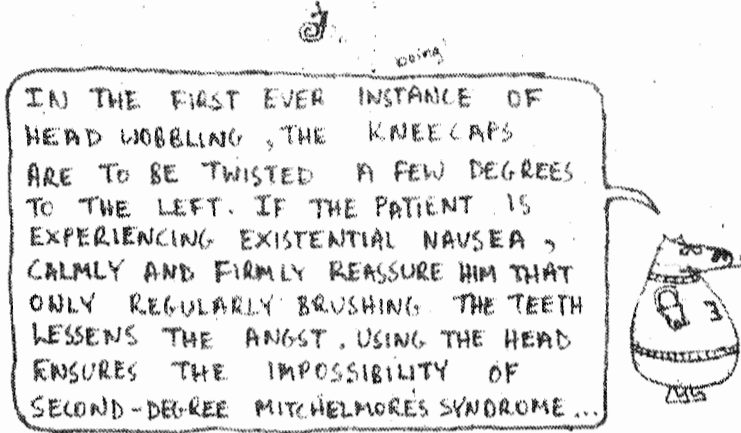 boing
IN THE FIRST EVER INSTANCE OF
HEAD WOBBLING, THE KNEECAPS
ARE TO BE TWISTED A FEW DEGREES
TO THE LEFT. IF THE PATIENT IS
EXPERIENCING EXISTENTIAL NAUSEA,
CALMLY AND FIRMLY REASSURE HIM THAT
ONLY REGULARLY BRUSHING THE TEETH
LESSENS THE ANGST. USING THE HEAD
ENSURES THE IMPOSSIBILITY OF
SECOND-DEGREE MITCHELMORES SYNDROME...
3